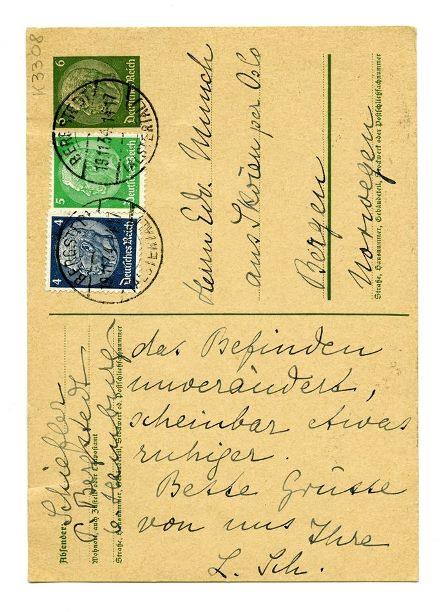 K3308
6
Deutsches Reich
5
Deutsches Reich
4
Deutsches Reich
Herrn Edv. Munch
aus Skőien per Oslo
Bergen
Norwegen
Straße, Hausnummer, Gebäudeteil, Stockwerk oder Postschließfachnummer
Absender:
Schiefler
Wohnort, auch Zustell- oder Leitpostamt
Straße, Hausnummer, Gebäudeteil, Stockwerk od. Postschließfachnummer
das Befinden
unverändert,
scheinbar etwas
ruhiger.
Beste Grüsse
von uns Ihre
L. Sch.